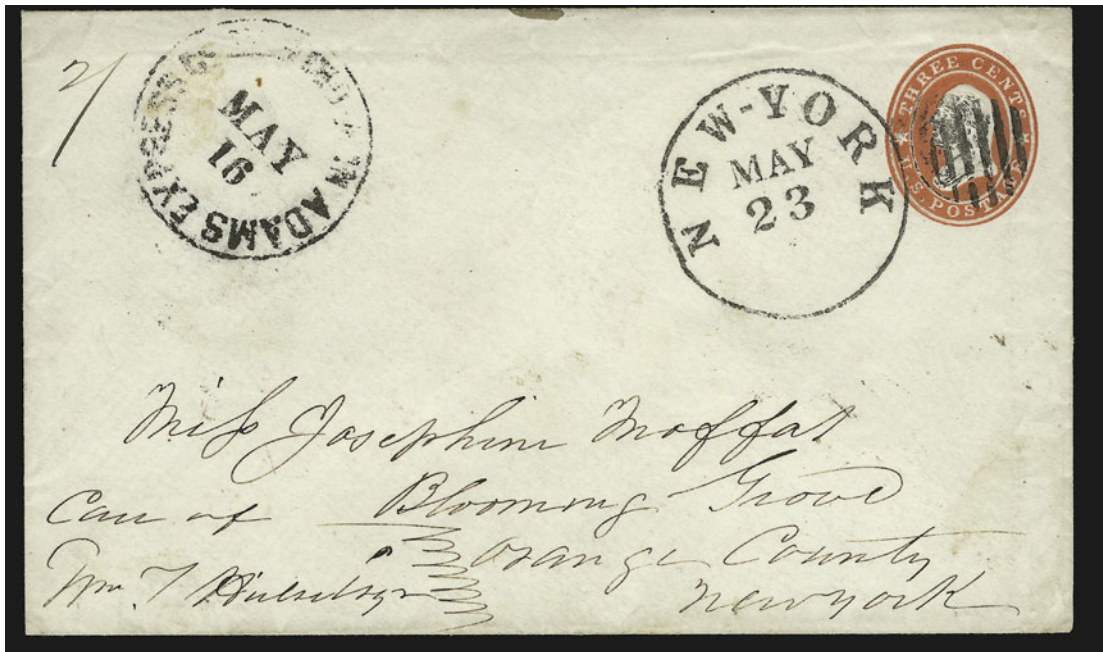 2/
ADAMS EXPRESS
MAY
16
NEW-YORK
MAY
23
THREE CENTS
U.S. POSTAGE
Miss Josephine Moffat
Care of Blooming Grove
Orange County
Wm. T
New york